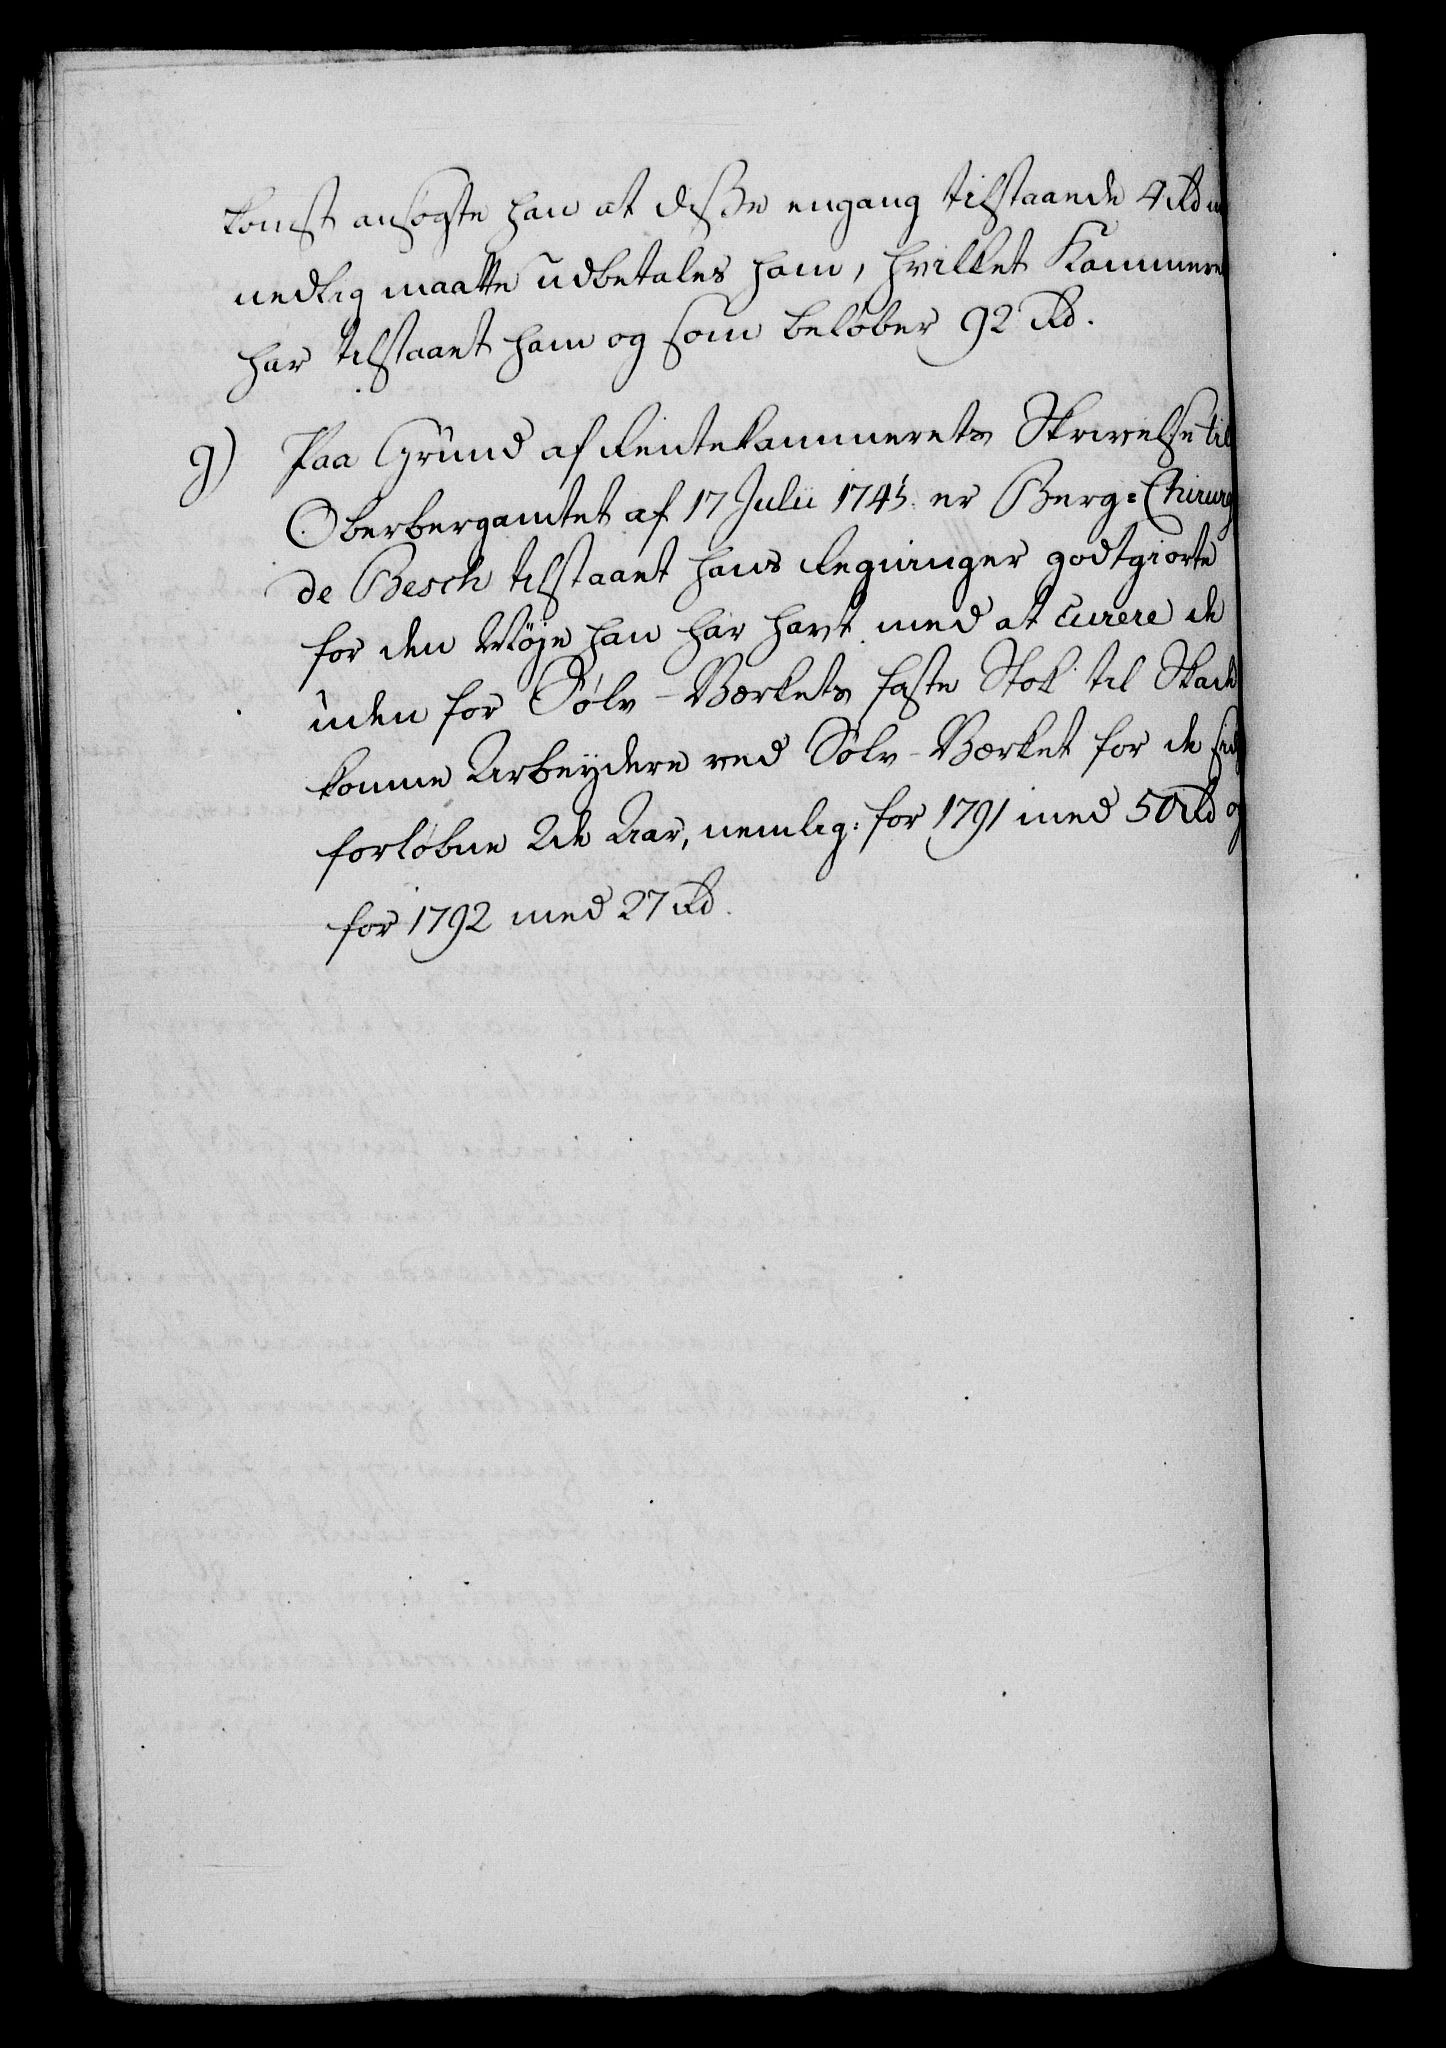 komst ansøgte han at disse engang tilstaaede 4 Rd
nedlig maatte udbetales ham, hvilket Kammere
har tilstaaet ham og som beløber 92 Rd.
g) Paa Grund af Rentekammerets Skrivelse til
Oberbergamtet af 17 Julii 1745. er Berg=Chirurg
de Besch tilstaaet hans Regninger godtgiorte
for den Møje han har havt med at curere de
uden for Sølv-Værkets faste Stok til Skade
komne Arbeydere ved Sølv-Værket for de
forløbne 2de Aar, nemlig: for 1791 med 50 Rd og
for 1792 med 27 Rd.